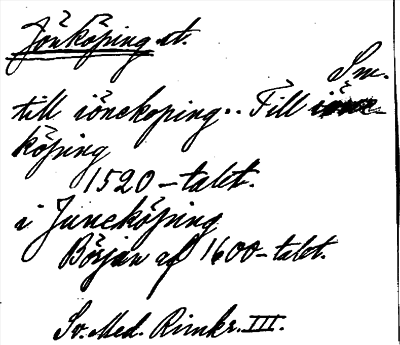 Jönköping st.
Sm.
till iönekoping.. Till
köping
1520-talet.
i Juneköping
Början af 1600-talet.
Sv. Med. Rimkr. III.